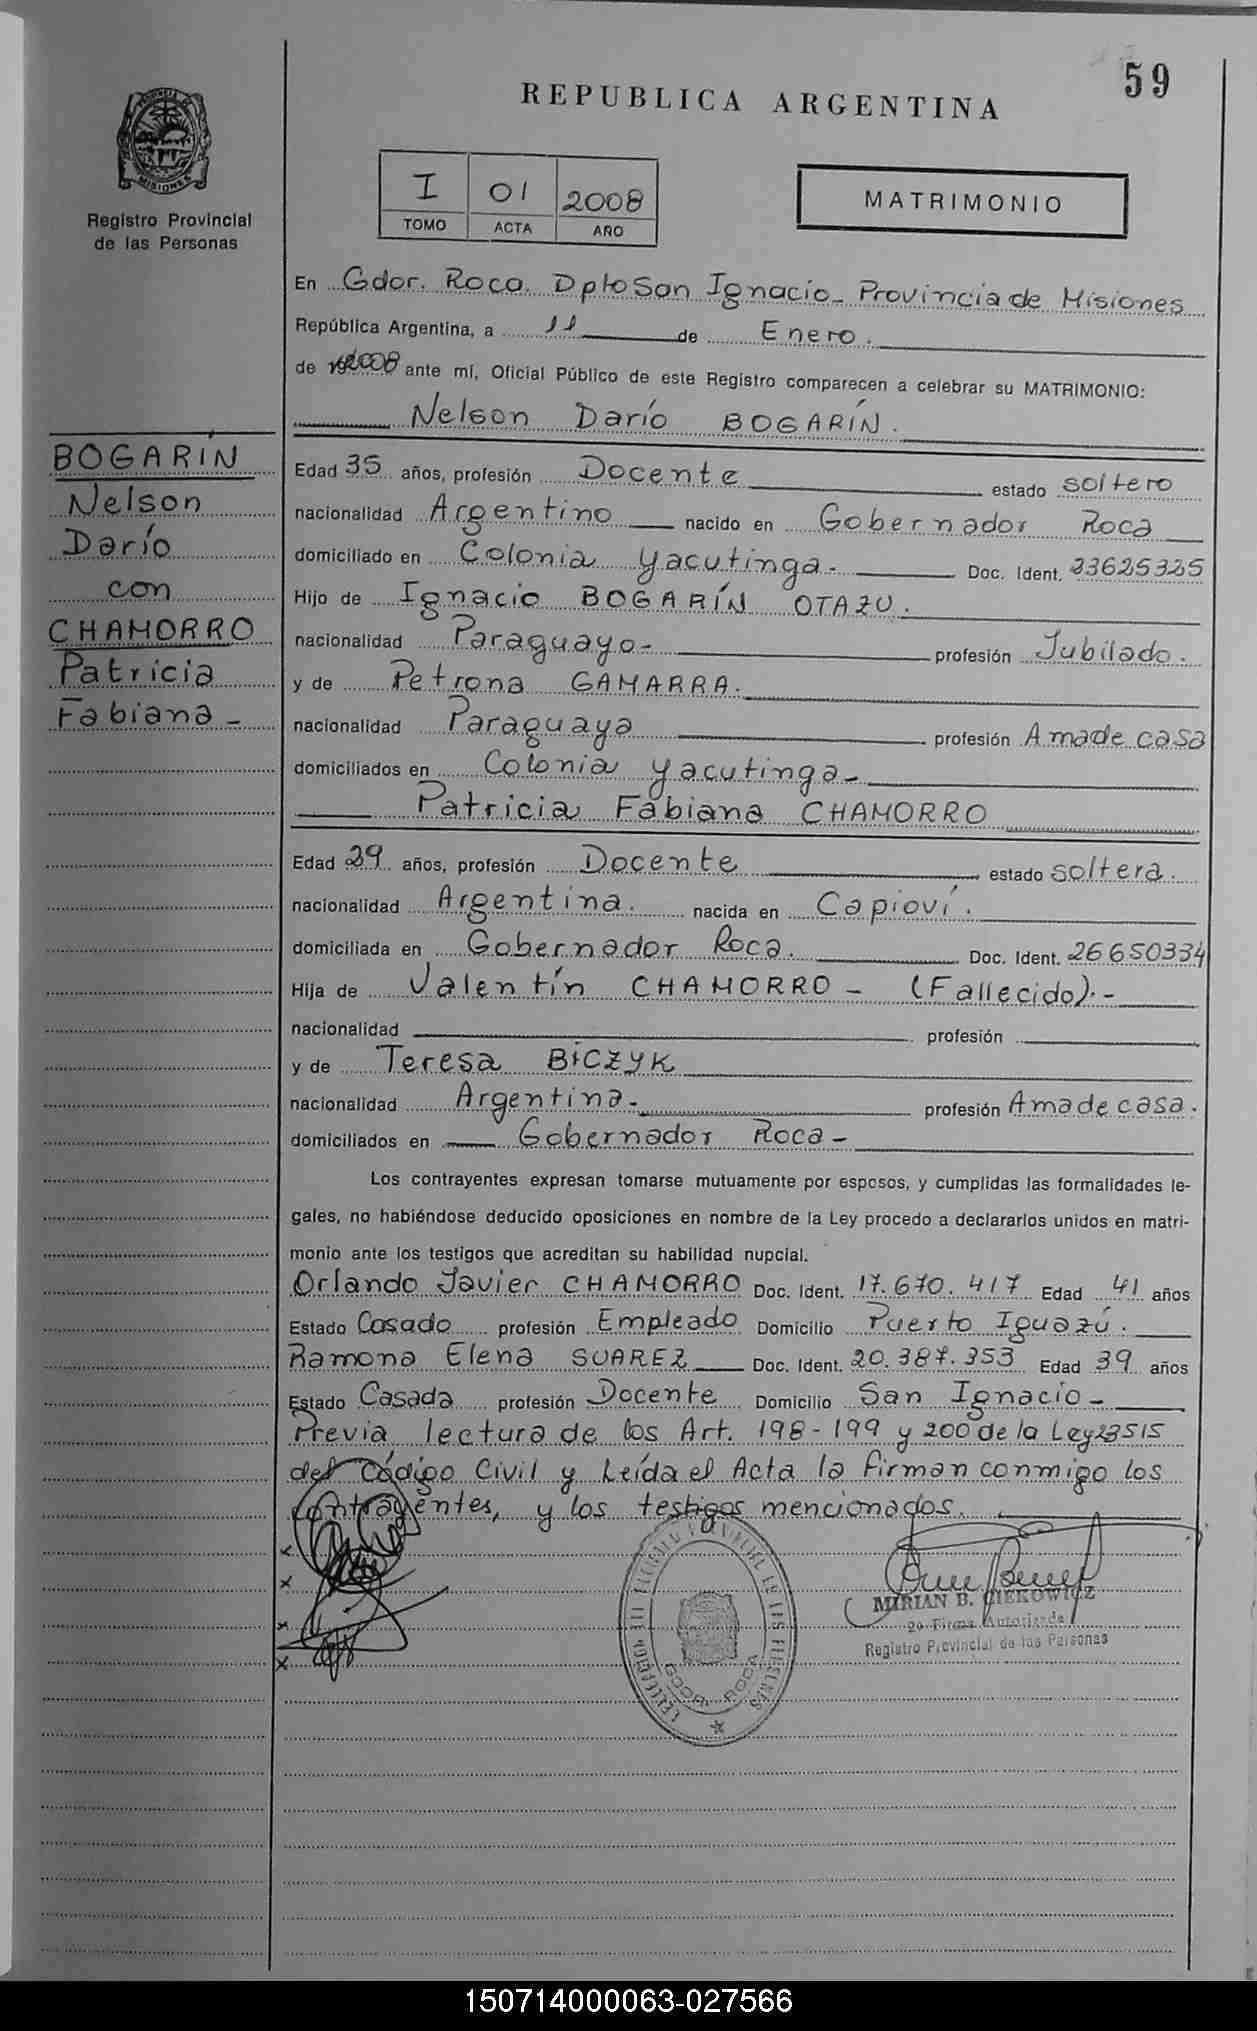 59
REPUBLICA ARGENTINA
MISIONES
Registro Provincial
de las Personas
I 01 2008
TOMO ACTA AÑO
MATRIMONIO
En Gdor. Roca. Dpto San Ignacio - Provincia de Misiones
República Argentina, a 11 de Enero.
de 2008 ante mí, Oficial Público de este Registro comparecen a celebrar su MATRIMONIO:
Nelson Darío BOGARÍN.
BOGARÍN
Nelson
Darío
con
CHAMORRO
Patricia
Fabiana -
Edad 35 años, profesión Docente estado soltero
nacionalidad Argentino nacido en Gobernador Roca
domiciliado en Colonia Yacutinga. Doc. Ident.
Hijo de Ignacio BOGARÍN OTAZU.
nacionalidad Paraguayo- profesión Jubilado.
y de Petrona GAMARRA.
nacionalidad Paraguaya profesión Ama de casa
domiciliados en Colonia Yacutinga-
Patricia Fabiana CHAMORRO
Edad 29 años, profesión Docente estado soltera.
nacionalidad Argentina. nacida en Capioví.
domiciliada en Gobernador Roca. Doc. Ident. 26650334
Hija de Valentín CHAMORRO - (Fallecido).-
nacionalidad profesión
y de Teresa BICZYK
nacionalidad Argentina- profesión Ama de casa.
domiciliados en Gobernador Roca-
Los contrayentes expresan tomarse mutuamente por esposos, y cumplidas las formalidades le-
gales, no habiéndose deducido oposiciones en nombre de la Ley procedo a declararlos unidos en matri-
monio ante los testigos que acreditan su habilidad nupcial.
Orlando Javier CHAMORRO Doc. Ident. 17.670.417 Edad 41 años
Estado Casado profesión Empleado Domicilio Puerto Iguazú.
Ramona Elena SUAREZ Doc. Ident. 20.387.353 Edad 39 años
Estado Casada profesión Docente Domicilio San Ignacio-
Previa lectura de los Art. 198-199 y 200 de la Ley 23515
del Código Civil y Leída el Acta la firman conmigo los
contrayentes, y los testigos mencionados.
x
x
x
x
GDOR. ROCA
MIRIAN B. CIEKOWICZ
2º Firma Autorizada
Registro Provincial de las Personas
150714000063-027566